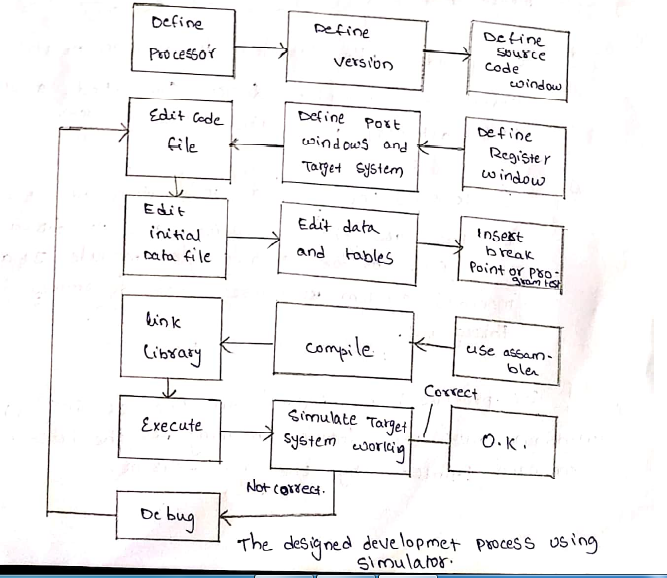 Define
Processor
Define
version
Define
source
code
window
Edit Code
file
Define Port
windows and
Target system
Define
Register
window
Edit
initial
Data file
Edit data
and tables
Insert
break
Point or pro-
gram test
link
library
compile
use assam-
bler
Correct
Execute
Simulate Target
system working
O.K.
Not correct.
Debug
The designed developmet process using
simulator.